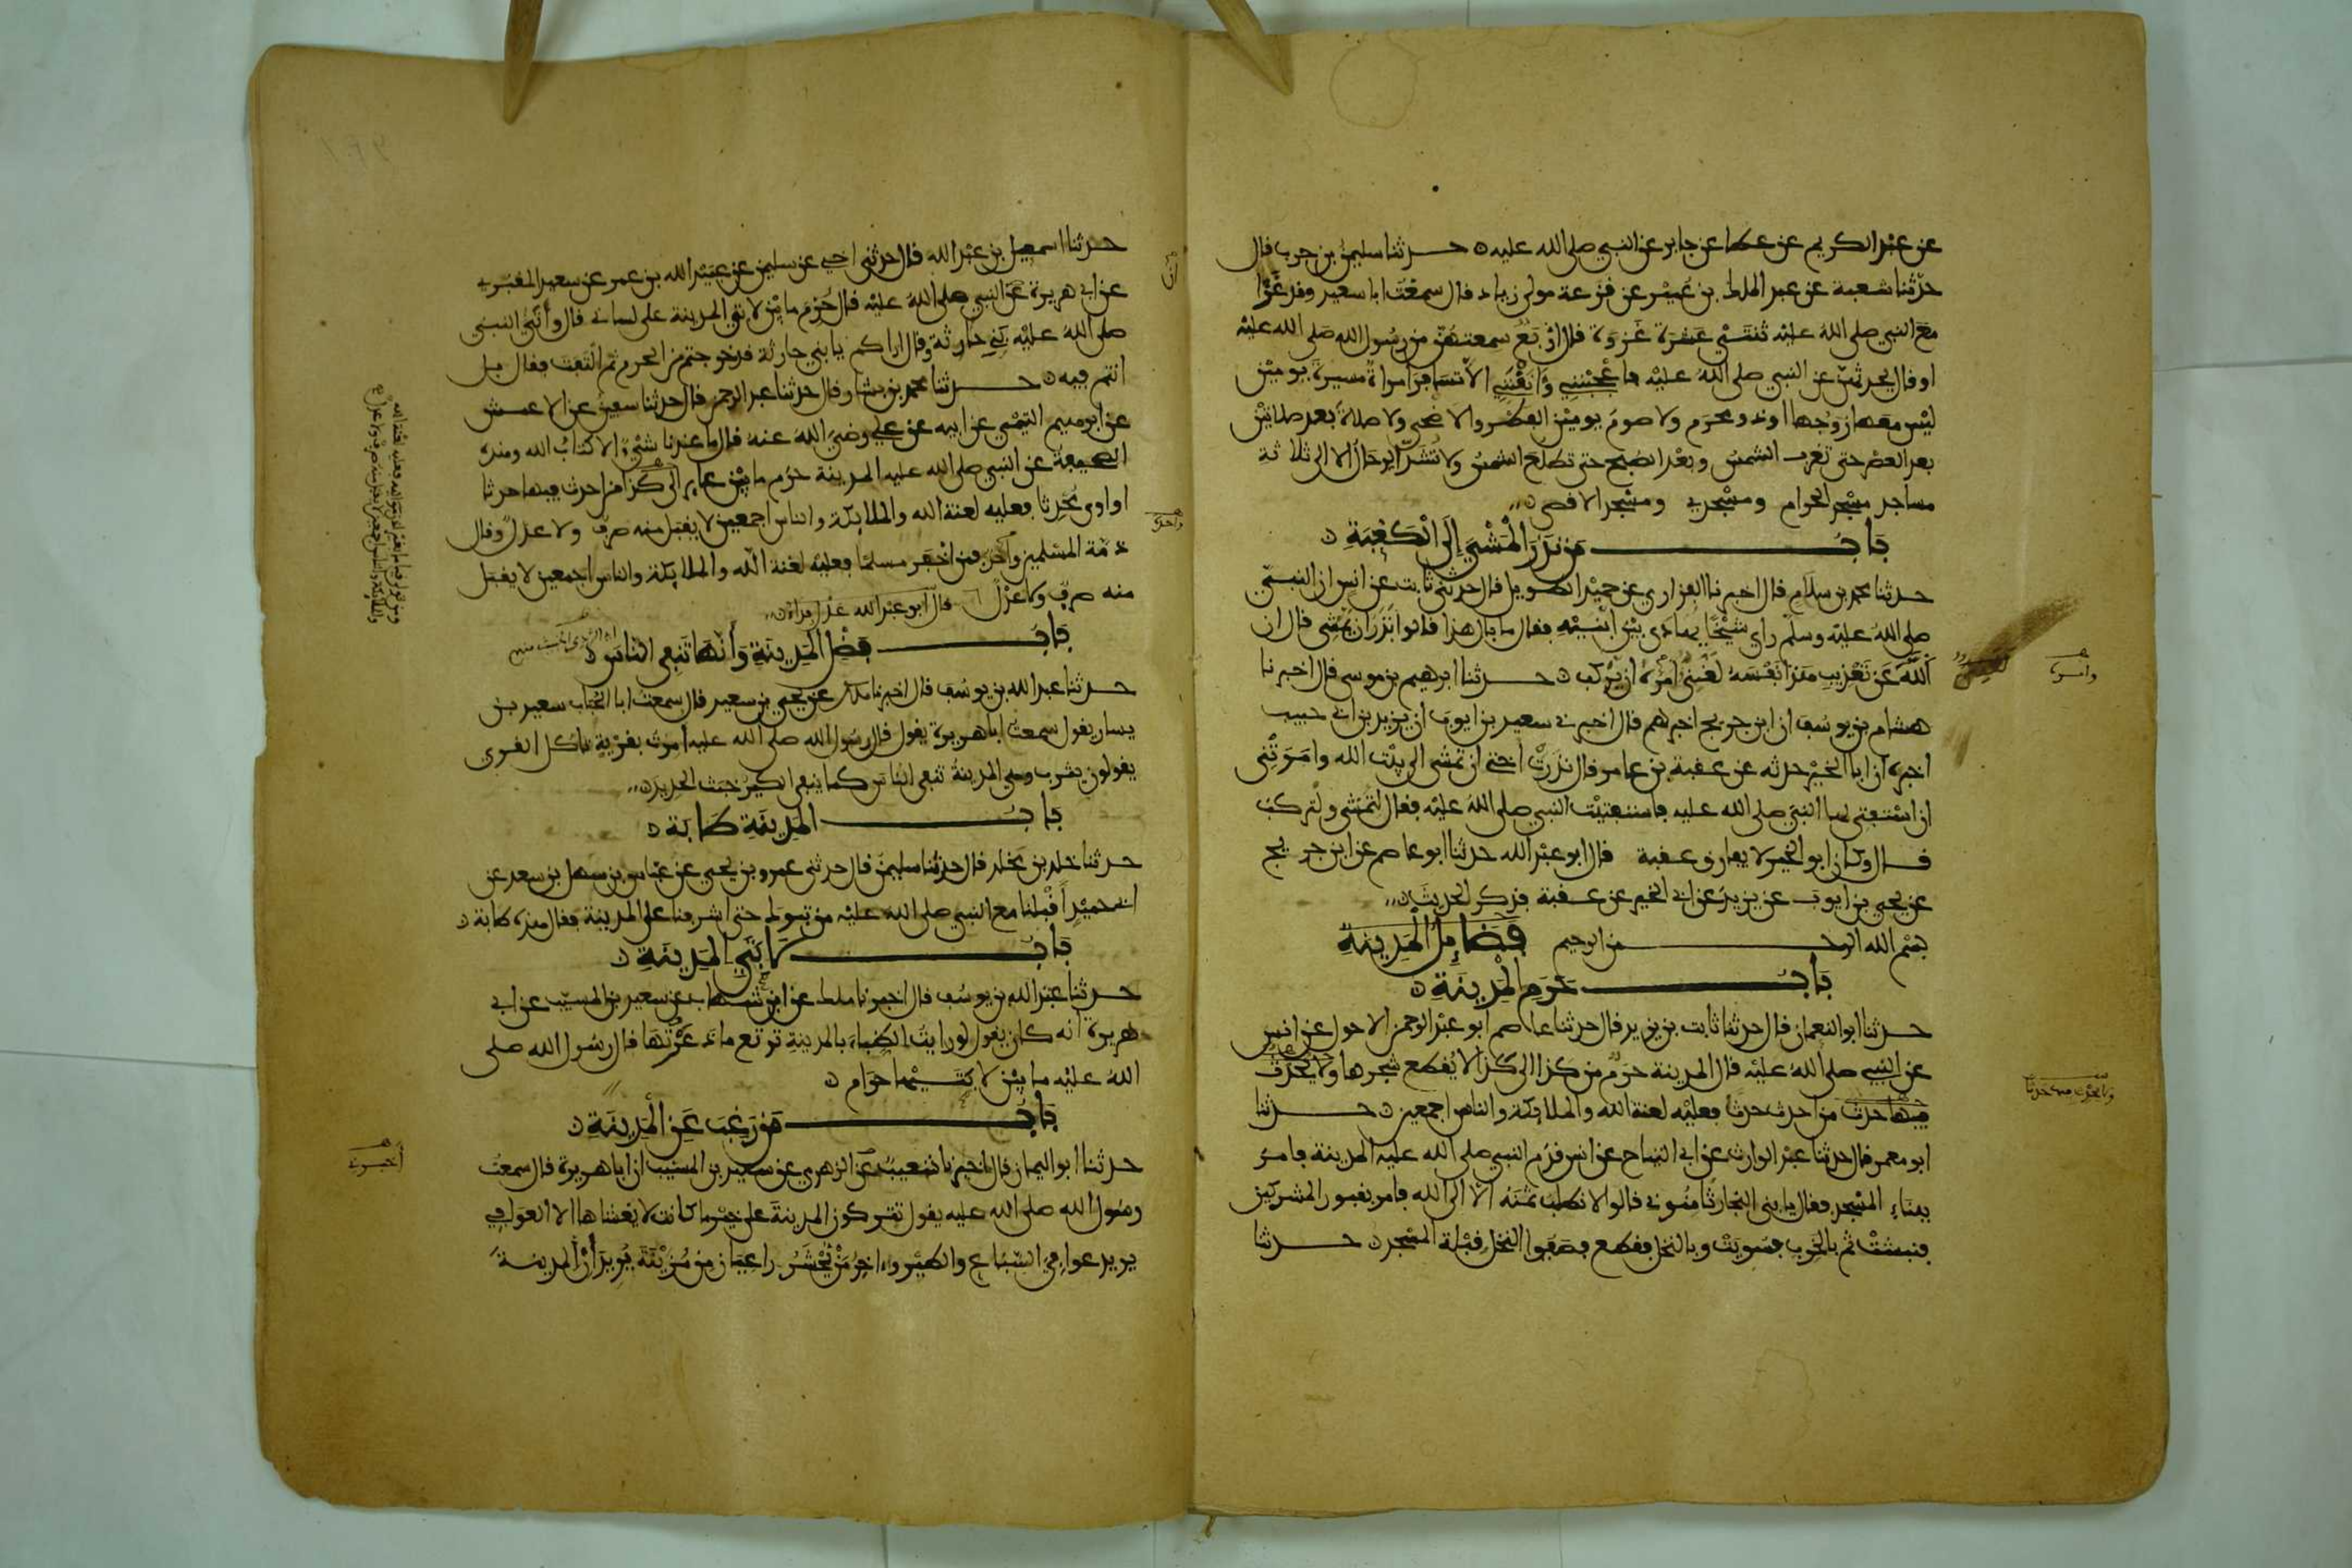 عن عبد الكريم عن عطا عن جابر عن النبي صلى الله عليه حدثنا سليمن بن حرب قال
حدثنا شعبة عن عبد الملك بن عمير عن قزعة مولى زياد قال سمعت ابا سعيد وقد غزا
مع النبي صلى الله عليه ثنتي عشرة غزوة قال اربع سمعتهن من رسول الله صلى الله عليه
او قال يحدثهن عن النبي صلى الله عليه فاعجبنني وانقنني الا تسافر امراة مسيرة يومين
ليس معها زوجها او ذو محرم ولا صوم يومين الفطر والاضحى ولا صلاة بعد صلاتين
بعد العصر حتى تغرب الشمس وبعد الصبح حتى تطلع الشمس ولا تشد الرحال الا الى ثلاثة
مساجد مسجد الحرام ومسجدي ومسجد الاقصى
باب من نذر المشي إلى الكعبة
حدثنا محمد بن سلام قال اخبرنا الفزاري عن حميد الطويل قال حدثني ثابت عن انس ان النبي
صلى الله عليه وسلم راى شيخا يهادى بين ابنيه فقال ما بال هذا قالوا نذر ان يمشي قال ان
الله عن تعذيب هذا نفسه لغني امره ان يركب حدثنا ابرهيم بن موسى قال اخبرنا
هشام بن يوسف ان ابن جريج اخبرهم قال اخبرني سعيد بن ايوب ان يزيد بن ابي حبيب
اخبره ان ابا الخير حدثه عن عقبة بن عامر قال نذرت اختي ان تمشي الى بيت الله وامرتني
ان استفتي لها النبي صلى الله عليه فاستفتيت النبي صلى الله عليه فقال لتمشي ولتركب
قال وكان ابو الخير لا يفارق عقبة قال ابو عبد الله حدثنا ابو عاصم عن ابن جريج
عن يحيى بن ايوب عن يزيد عن ابي الخير عن عقبة فذكر الحديث
بسم الله الرحمن الرحيم فضائل المدينة
باب حرم المدينة
حدثنا ابو النعمان قال حدثنا ثابت بن يزيد قال حدثنا عاصم ابو عبد الرحمن الاحول عن انس
عن النبي صلى الله عليه قال المدينة حرم من كذا الى كذا لا يقطع شجرها ولا يحدث
فيها حدث من احدث حدثا فعليه لعنة الله والملائكة والناس اجمعين حدثنا
ابو معمر قال حدثنا عبد الوارث عن ابي التياح عن انس قدم النبي صلى الله عليه المدينة فامر
ببناء المسجد فقال يا بني النجار ثامنوني قالوا لا نطلب ثمنه الا الى الله فامر بقبور المشركين
فنبشت ثم بالخرب فسويت وبالنخل فقطع فصفوا النخل قبلة المسجد حدثنا
حدثنا اسمعيل بن عبد الله قال حدثني اخي عن سليمن عن عبيد الله بن عمر عن سعيد المقبري
عن ابي هريرة عن النبي صلى الله عليه قال حرم ما بين لابتي المدينة على لساني قال واتى النبي
صلى الله عليه بني حارثة وقال اراكم يا بني حارثة قد خرجتم من الحرم ثم التفت فقال بل
انتم فيه حدثنا محمد بن بشار قال حدثنا عبد الرحمن قال حدثنا سفين عن الاعمش
عن ابرهيم التيمي عن ابيه عن علي رضي الله عنه قال ما عندنا شيء الا كتاب الله وهذه
الصحيفة عن النبي صلى الله عليه المدينة حرم ما بين عاير الى كذا من احدث فيها حدثا
او اوى محدثا فعليه لعنة الله والملائكة والناس اجمعين لا يقبل منه صرف ولا عدل وقال
ذمة المسلمين واحدة فمن اخفر مسلما فعليه لعنة الله والملائكة والناس اجمعين لا يقبل
منه صرف ولا عدل قال ابو عبد الله عدل فداء
باب فضل المدينة وأنها تنفي الناس
حدثنا عبد الله بن يوسف قال اخبرنا ملك عن يحيى بن سعيد قال سمعت ابا الحباب سعيد بن
يسار يقول سمعت ابا هريرة يقول قال رسول الله صلى الله عليه امرت بقرية تاكل القرى
يقولون يثرب وهي المدينة تنفي الناس كما ينفي الكير خبث الحديد
باب المدينة طابة
حدثنا خلد بن مخلد قال حدثنا سليمن قال حدثني عمرو بن يحيى عن عباس بن سهل بن سعد عن
ابي حميد اقبلنا مع النبي صلى الله عليه من تبوك حتى اشرفنا على المدينة فقال هذه طابة
باب لابتي المدينة
حدثنا عبد الله بن يوسف قال اخبرنا ملك عن ابن شهاب عن سعيد بن المسيب عن ابي
هريرة انه كان يقول لو رايت الظباء بالمدينة ترتع ما ذعرتها قال رسول الله صلى
الله عليه ما بين لابتيها حرام
باب من رغب عن المدينة
حدثنا ابو اليمان قال اخبرنا شعيب عن الزهري عن سعيد بن المسيب ان ابا هريرة قال سمعت
رسول الله صلى الله عليه يقول تتركون المدينة على خير ما كانت لا يغشاها الا العوافي
يريد عوافي السباع والطير واخر من يحشر راعيان من مزينة يريدان المدينة